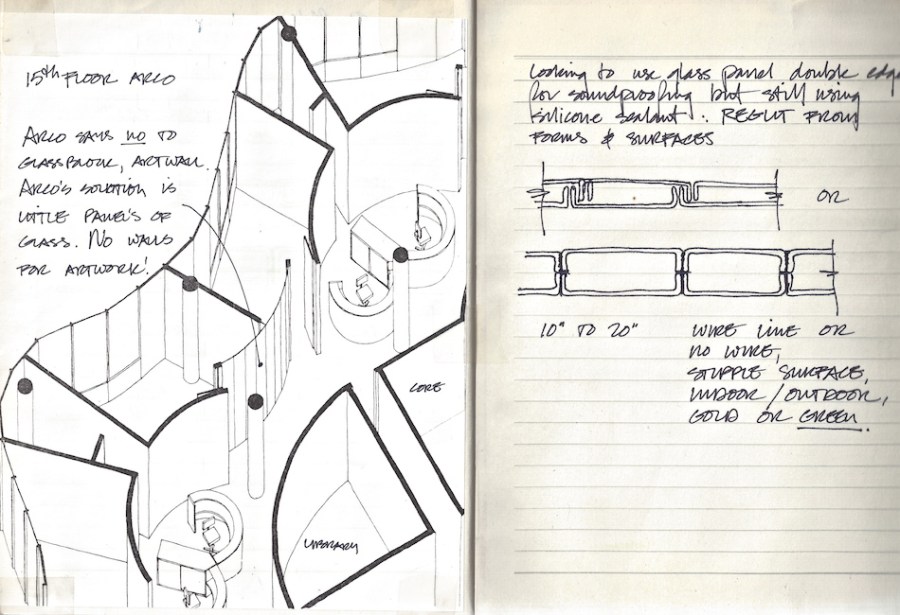 15th FLOOR ARCO
ARCO SAYS NO TO
GLASSBLOCK, ARTWALL.
ARCO'S SOLUTION IS
LITTLE PANEL'S OF
GLASS. NO WALLS
FOR ARTWORK!
CORE
LIBRARY
Looking to use glass panel double edge
for soundproofing but still using
silicone sealant. REGLIT FROM
FORMS & SURFACES
OR
10" TO 20"
WIRE LINE OR
NO WIRE,
STIPPLE SURFACE,
INDOOR / OUTDOOR,
GOLD OR GREEN.